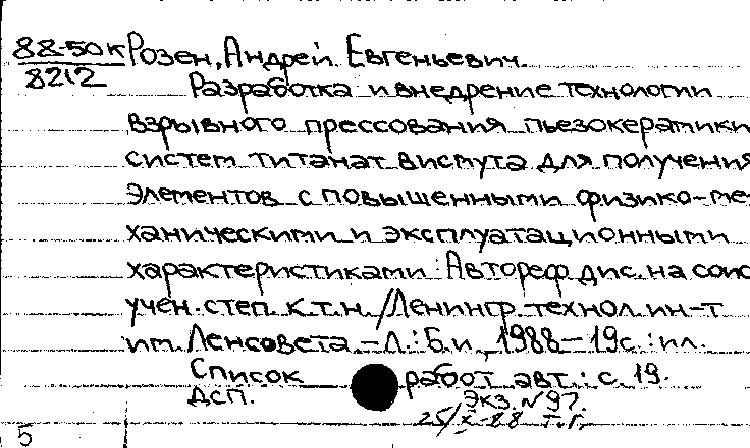 88-50к Розен, Андрей Евгеньевич.
8212 Разработка и внедрение технологии
взрывного прессования пьезокерамики
систем титанат висмута для получения
элементов с повышенными физико-ме-
ханическими и эксплуатационными
характеристиками : Автореф. дис. на соис
учен. степ. к.т.н. / Ленингр. технол. ин-т
им. Ленсовета. – Л. : Б.и., 1988 – 19с. : ил.
Список работ авт. : с. 19.
ДСП.
Экз. N 97
25/X-88
5